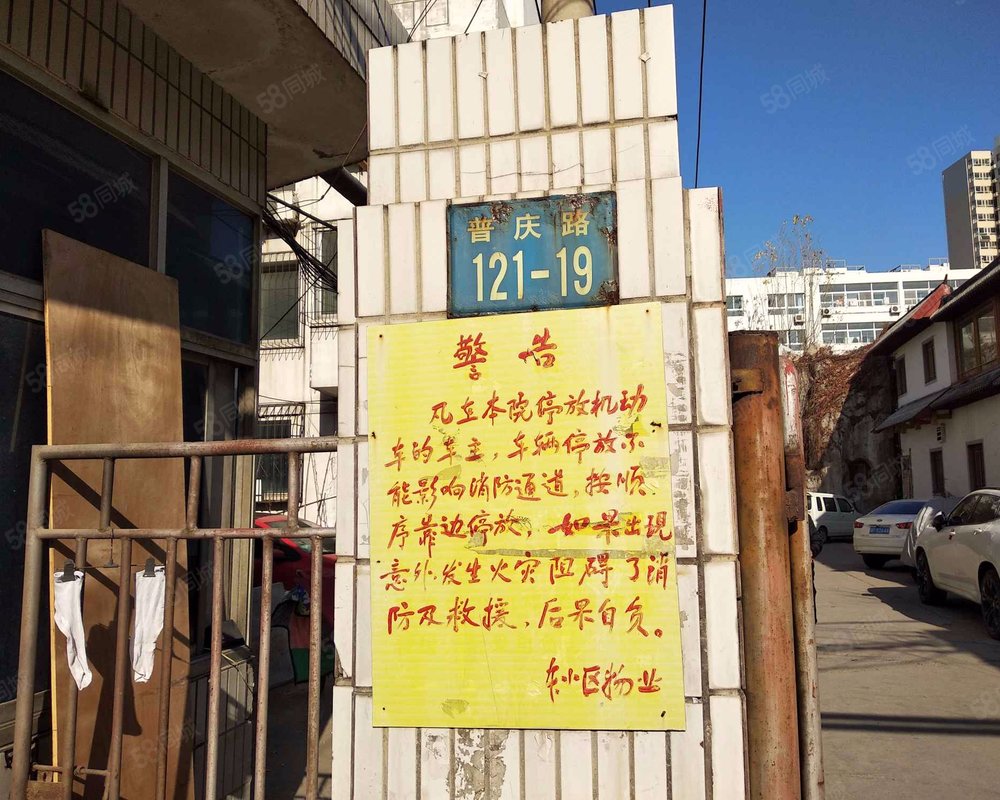 普庆路
121-19
警告
凡在本院停放机动
车的车主，车辆停放不
能影响消防通道，按顺
序靠边停放，如果出现
意外发生火灾阻碍了消
防及救援，后果自负。
本小区物业
58同城
58同城
58同城
58同城